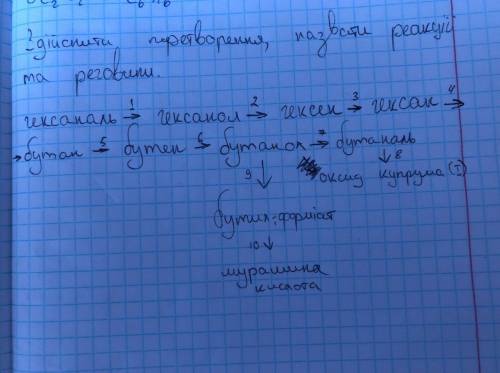 Здійснити перетворення, назвати реакції
та реговини.
гексаналь 1→ гексанол 2→ гексен 3→ гексан 4→
→ бутан 5→ бутен 6→ бутанол 7→ бутаналь
9↓ ↓8
оксид купрума (I)
бутил-форміат
10↓
мурашина
кислота